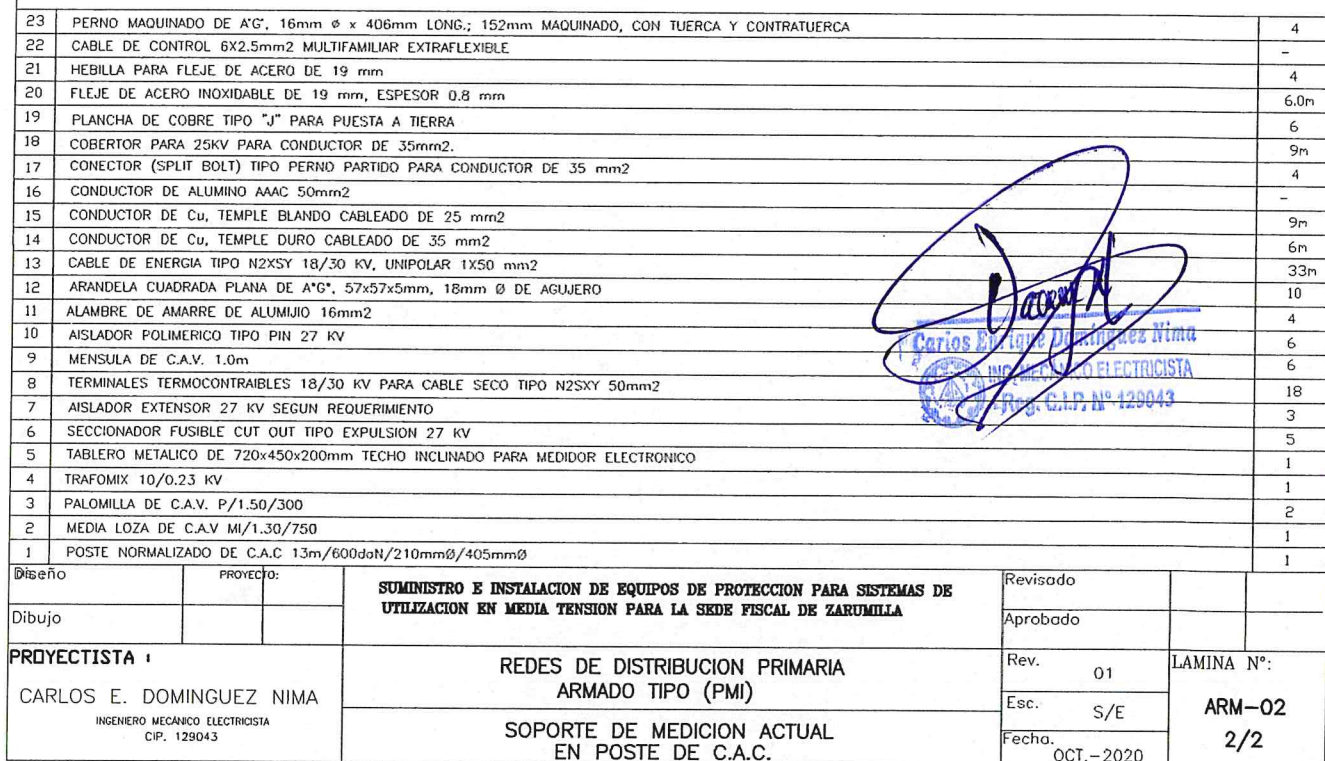 23 PERNO MAQUINADO DE A°G°, 16mm ø x 406mm LONG.; 152mm MAQUINADO, CON TUERCA Y CONTRATUERCA 4
22 CABLE DE CONTROL 6X2.5mm2 MULTIFAMILIAR EXTRAFLEXIBLE -
21 HEBILLA PARA FLEJE DE ACERO DE 19 mm 4
20 FLEJE DE ACERO INOXIDABLE DE 19 mm, ESPESOR 0.8 mm 6.0m
19 PLANCHA DE COBRE TIPO "J" PARA PUESTA A TIERRA 6
18 COBERTOR PARA 25KV PARA CONDUCTOR DE 35mm2. 9m
17 CONECTOR (SPLIT BOLT) TIPO PERNO PARTIDO PARA CONDUCTOR DE 35 mm2 4
16 CONDUCTOR DE ALUMINO AAAC 50mm2 -
15 CONDUCTOR DE Cu, TEMPLE BLANDO CABLEADO DE 25 mm2 9m
14 CONDUCTOR DE Cu, TEMPLE DURO CABLEADO DE 35 mm2 6m
13 CABLE DE ENERGIA TIPO N2XSY 18/30 KV, UNIPOLAR 1X50 mm2 33m
12 ARANDELA CUADRADA PLANA DE A°G°, 57x57x5mm, 18mm Ø DE AGUJERO 10
11 ALAMBRE DE AMARRE DE ALUMIJIO 16mm2 4
10 AISLADOR POLIMERICO TIPO PIN 27 KV 6
9 MENSULA DE C.A.V. 1.0m 6
8 TERMINALES TERMOCONTRAIBLES 18/30 KV PARA CABLE SECO TIPO N2SXY 50mm2 18
7 AISLADOR EXTENSOR 27 KV SEGUN REQUERIMIENTO 3
6 SECCIONADOR FUSIBLE CUT OUT TIPO EXPULSION 27 KV 5
5 TABLERO METALICO DE 720x450x200mm TECHO INCLINADO PARA MEDIDOR ELECTRONICO 1
4 TRAFOMIX 10/0.23 KV 1
3 PALOMILLA DE C.A.V. P/1.50/300 2
2 MEDIA LOZA DE C.A.V MI/1.30/750 1
1 POSTE NORMALIZADO DE C.A.C 13m/600daN/210mmØ/405mmØ 1
Carlos Enrique Domínguez Nima
ING. MECANICO ELECTRICISTA
Reg. C.I.P. N° 129043
Diseño
PROYECTO:
Dibujo
SUMINISTRO E INSTALACION DE EQUIPOS DE PROTECCION PARA SISTEMAS DE
UTILIZACION EN MEDIA TENSION PARA LA SEDE FISCAL DE ZARUMILLA
Revisado
Aprobado
PROYECTISTA :
CARLOS E. DOMINGUEZ NIMA
INGENIERO MECÁNICO ELECTRICISTA
CIP. 129043
REDES DE DISTRIBUCION PRIMARIA
ARMADO TIPO (PMI)
SOPORTE DE MEDICION ACTUAL
EN POSTE DE C.A.C.
Rev. 01
Esc. S/E
Fecha. OCT.-2020
LAMINA N°:
ARM-02
2/2